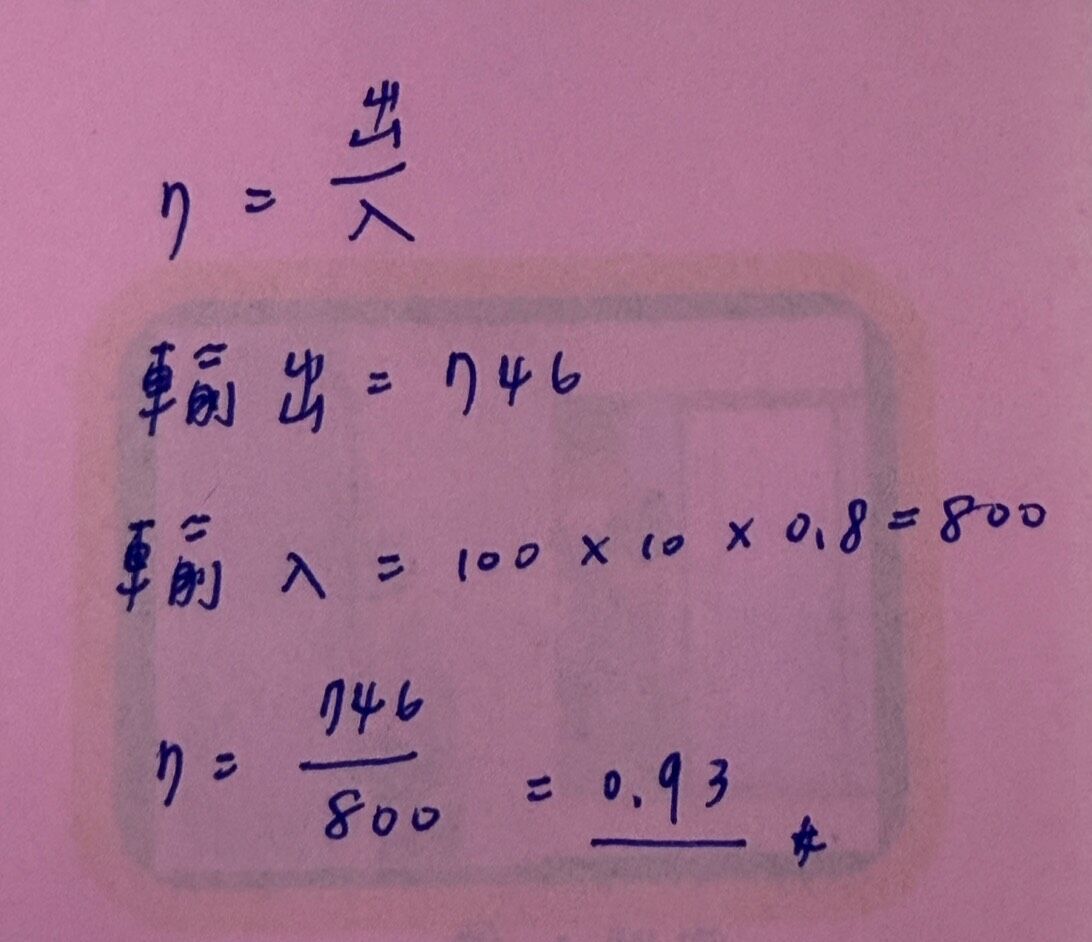 η = 出/入
輸出 = 746
輸入 = 100 × 10 × 0.8 = 800
η = 746/800 = 0.93 #